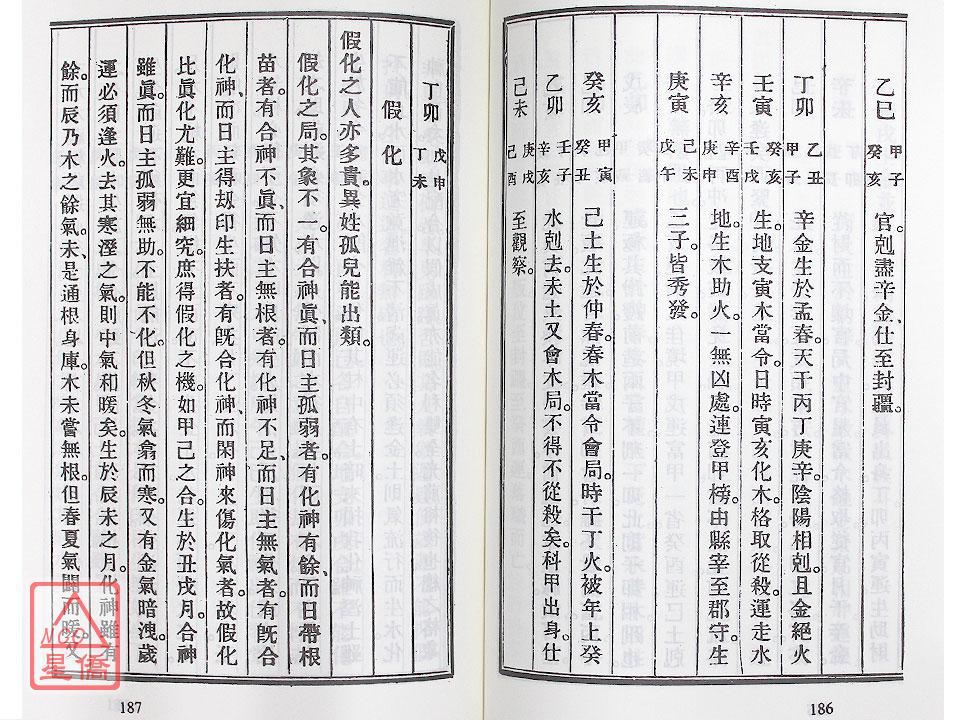 乙巳　甲子　癸亥　官。剋盡辛金、仕至封疆。
丁卯　乙丑　甲子　辛金生於孟春。天干丙丁庚辛、陰陽相剋。且金絕火
壬寅　癸亥　壬戌　生地、支寅木當令。日時寅亥化木。格取從殺。運走水
辛亥　辛酉　庚申　地。生木助火。一無凶處。連登甲榜。由縣宰至郡守。生
庚寅　己未　戊午　三子。皆秀發。
癸亥　甲寅　癸丑　己土生於仲春。春木當令會局。時干丁火。被年上癸
乙卯　壬子　辛亥　水剋去。未土又會木局。不得不從殺矣。科甲出身。仕
己未　庚戌　己酉　至觀察。
丁卯　戊申　丁未
假化
假化之人亦多貴。異姓孤兒能出類。
假化之局。其象不一。有合神眞。而日主孤弱者。有化神有餘。而日帶根
苗者。有合神不眞。而日主無根者。有化神不足、而日主無氣者。有旣合
化神、而日主得刼印生扶者。有旣合化神、而閑神來傷化氣者。故假化
比眞化尤難。更宜細究。庶得假化之機。如甲己之合。生於丑戌月。合神
雖眞。而日主孤弱無助。不能不化。但秋冬氣翕而寒。又有金氣暗洩。歲
運必須逢火。去其寒溼之氣。則中氣和暖矣。生於辰未之月。化神雖有
餘。而辰乃木之餘氣。未、是通根身庫。木未嘗無根。但春夏氣闢而暖。又
187
186
星僑
NCC